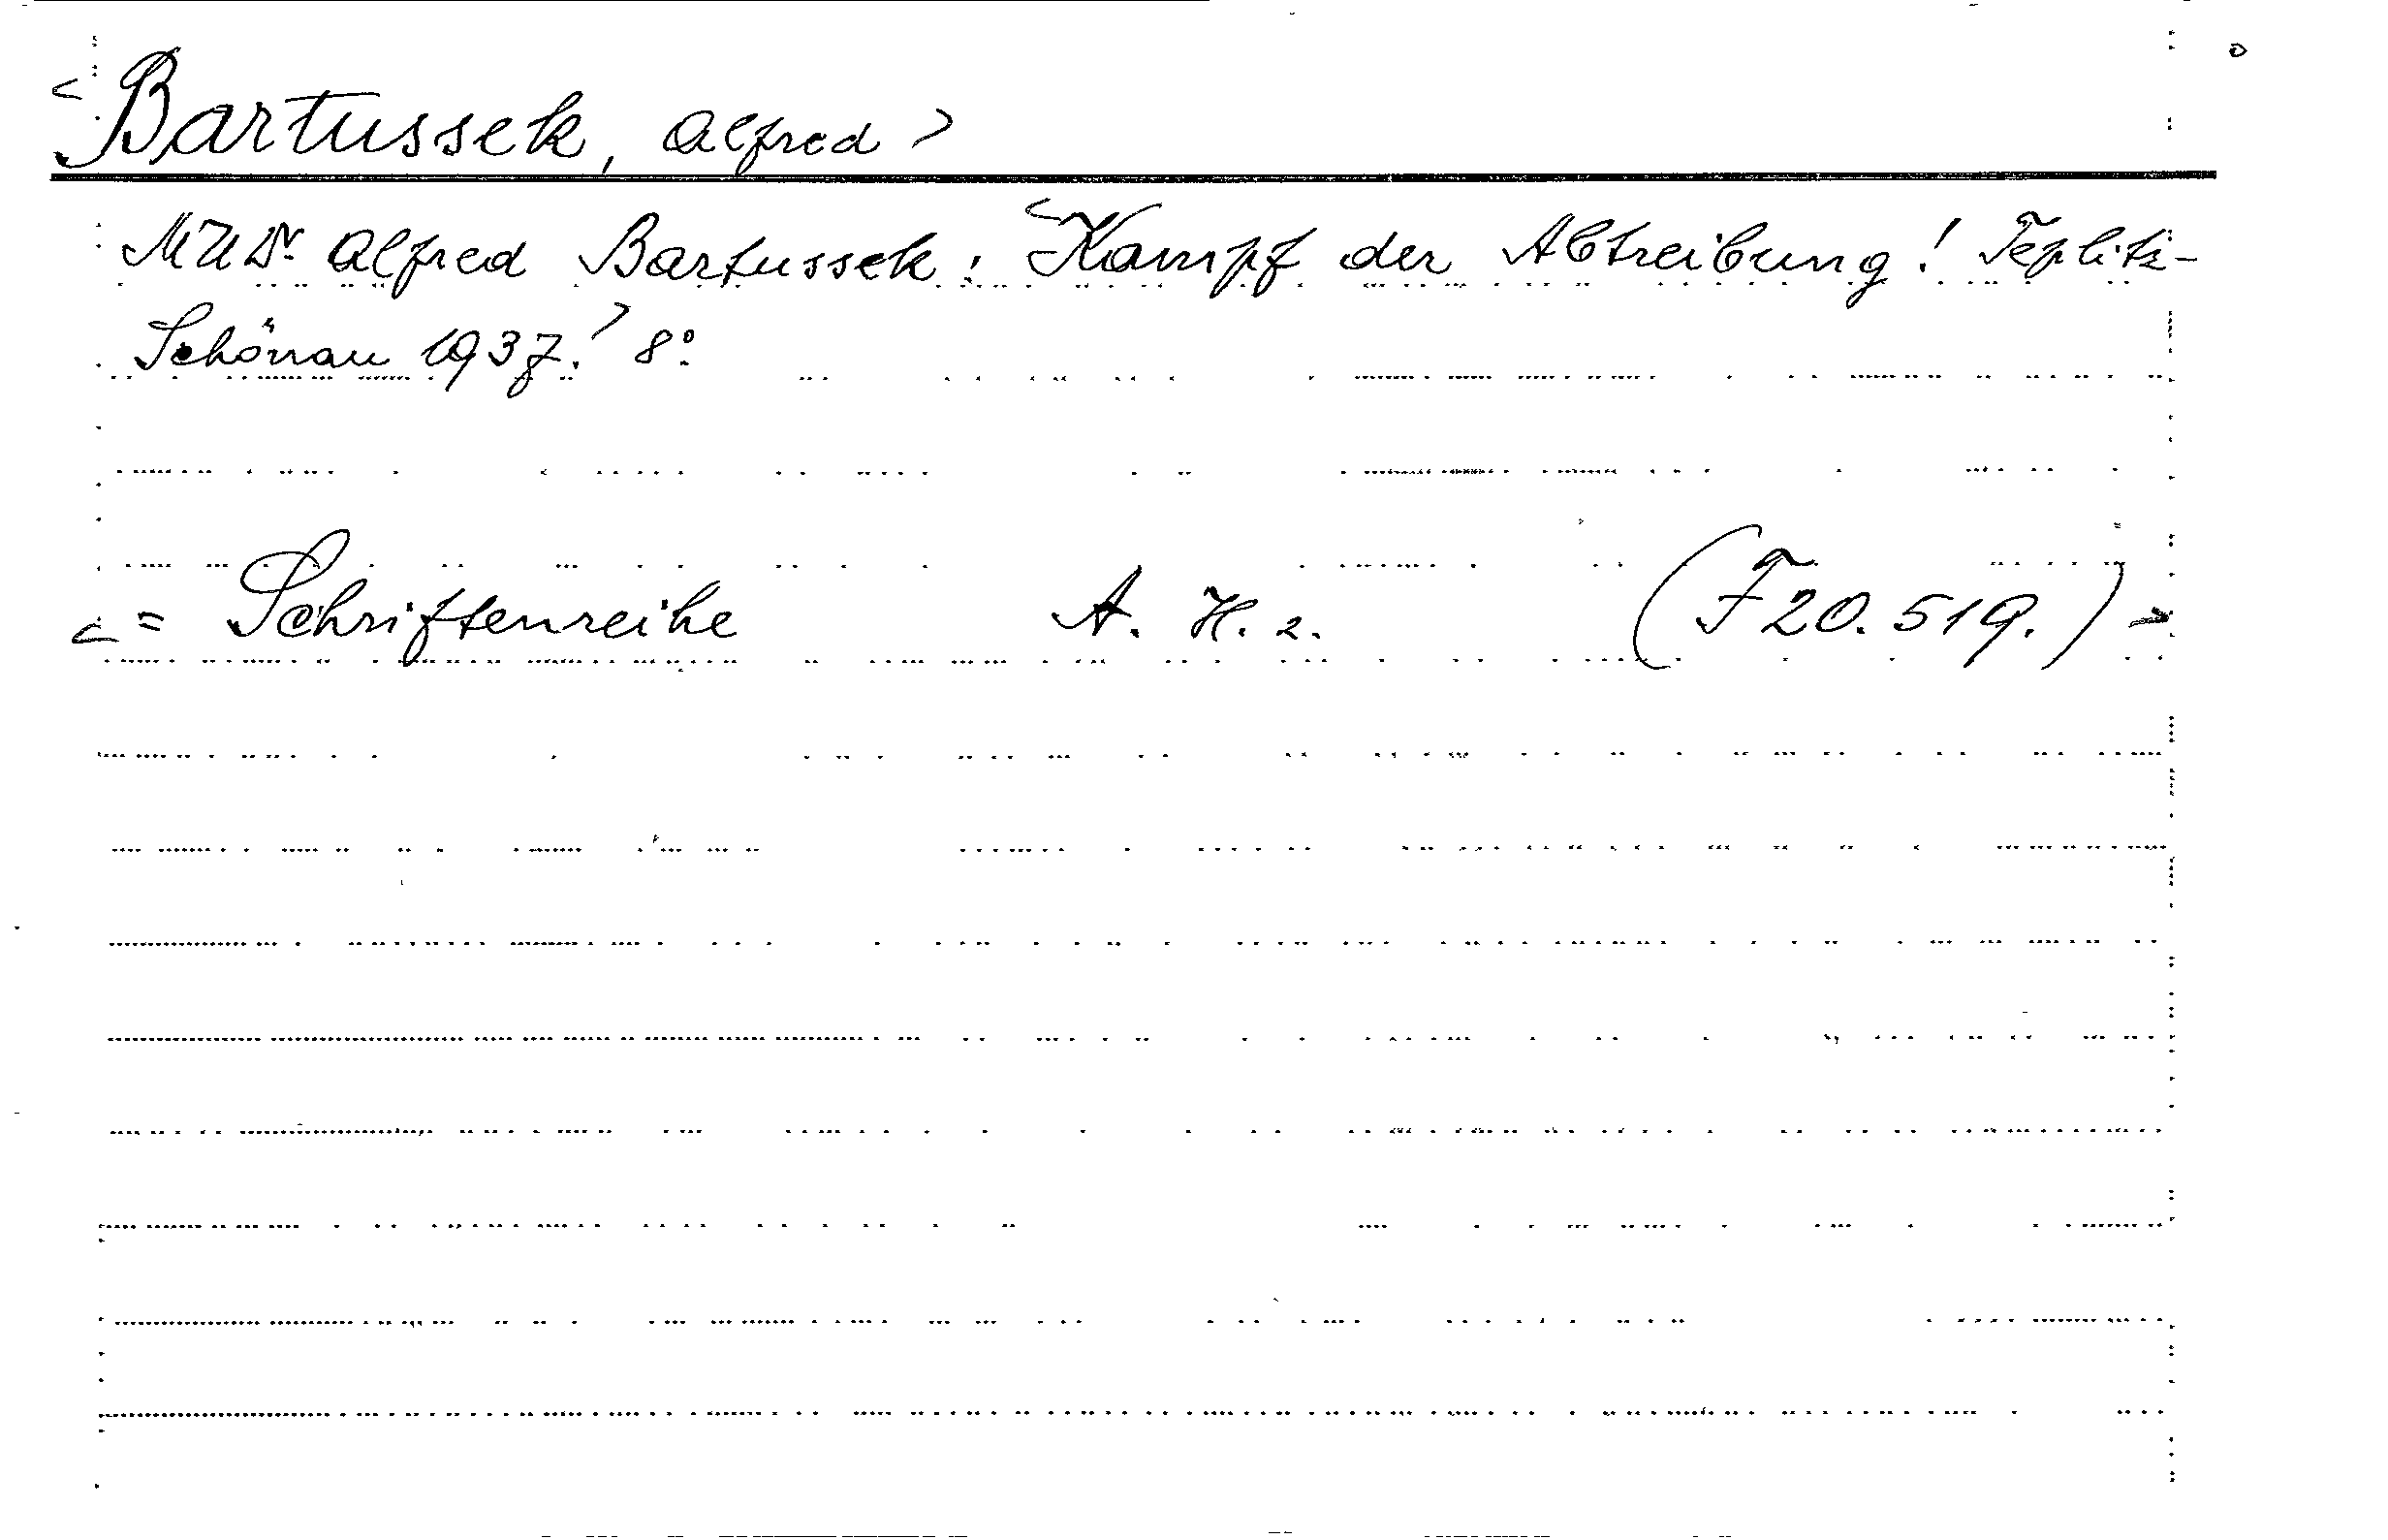 <Bartussek, Alfred>
MUDr. Alfred Bartussek: <Kampf der Abtreibung! Teplitz-
Schönau 1937.> 8°.
<= Schriftenreihe A. H. 2. (F 20.519.)>